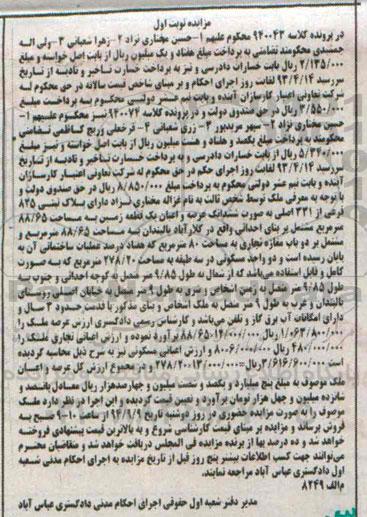 مزایده نوبت اول
در پرونده کلاسه ۹۴۰۰۴۳ محکوم علیهم ۱- حسین مختاری نژاد ۲- زهرا شعبانی ۳- ولی اله
جمشیدی محکومند تضامنی به پرداخت مبلغ هفتاد و یک میلیون ریال از بابت اصل خواسته و مبلغ
۲/۱۳۵/۰۰۰ ریال بابت خسارات دادرسی و نیز به پرداخت خسارت تاخیر و تادیه از تاریخ
سررسید ۹۳/۴/۱۴ لغایت روز اجرای احکام و بر مبنای شاخص قیمت سالانه در حق محکوم له
شرکت تعاونی اعتبار کارسازان آینده و بابت نیم عشر دولتی محکوم به پرداخت مبلغ
۳/۵۵۰/۰۰۰ ریال در حق صندوق دولت و در پرونده کلاسه ۹۳۰۰۷۴ نیز محکوم علیهم ۱-
حسین مختاری نژاد ۲- سپهر مریدپور ۳- زری شعبانی ۴- فرخعلی وزیج کاظمی تضامنی
محکومند به پرداخت مبلغ یکصد و هفتاد و هشت میلیون ریال از بابت اصل خواسته و نیز مبلغ
ریال از بابت خسارات دادرسی و به پرداخت خسارت تاخیر و تادیه از تاریخ
سررسید ۹۳/۴/۱۴ لغایت روز اجرای حکم در حق محکوم به شرکت تعاونی اعتبار کارسازان
آینده و بابت نیم عشر دولتی محکوم به پرداخت مبلغ ۸/۸۵۰/۰۰۰ ریال در حق صندوق دولت و
با توجه به معرفی ملک توسط شخص ثالث به نام غزاله مختاری نژاد دارای پلاک ثبتی ۸۲۵
فرعی از ۳۳۱ اصلی به صورت ششدانگ عرصه و اعیان یک قطعه زمین به مساحت ۸۸/۶۵
مترمربع مشتمل بر بنای احداثی واقع در کلارآباد تالیندان به مساحت ۸۸/۶۵ مترمربع و
مشتمل بر دو باب مغازه تجاری به مساحت ۸۰ مترمربع که هفتاد درصد عملیات ساختمانی آن به
پایان رسیده است و دو واحد مسکونی در سه طبقه به مساحت ۲۷۸/۲۰ مترمربع که به صورت
کامل و قابل استفاده می‌باشد که از شمال به طول ۹/۸۵ متر متصل به کوچه احداثی و جنوب به
طول ۹/۸۵ متر متصل به زمین اشخاص و شرق به طول ۹ متر متصل به خیابان اصلی روستای
تالیندان و غرب به طول ۹ متر متصل به ملک اشخاص و بنای مذکور با قدمت حدود ۳ سال و
دارای امکانات آب برق گاز و تلفن می‌باشد و کارشناس رسمی دادگستری ارزش عرصه ملک را
۱/۰۶۳/۸۰۰/۰۰۰ ریال=۸۸/۶۵×۱۲/۰۰۰/۰۰۰ برآورد نموده و ارزش اعیانی تجاری ملک را
۴۸۰/۰۰۰/۰۰۰ ریال = ۸۰×۶/۰۰۰/۰۰۰ و ارزش اعیانی مسکونی نیز به شرح ذیل محاسبه گردیده
است ۳/۶۱۶/۶۰۰/۰۰۰ ریال=۲۷۸/۲۰×۱۳/۰۰۰/۰۰۰ و در مجموع ارزش کل عرصه و اعیان
ملک موصوف به مبلغ پنج میلیارد و یکصد و شصت میلیون و چهارصدهزار ریال معادل پانصد و
شانزده میلیون و چهل هزار تومان برآورد و تعیین قیمت گردیده و این اجرا در نظر دارد ملک
موصوف را به صورت مزایده حضوری در روز دوشنبه تاریخ ۹۴/۹/۹ از ساعت ۱۰-۹ صبح به
فروش برساند و مزایده بر مبنای قیمت کارشناسی شروع و به بالاترین قیمت پیشنهادی فروخته
خواهد شد و ده درصد بها از برنده مزایده فی المجلس دریافت خواهد شد و متقاضیان محترم
می‌توانند جهت کسب اطلاعات بیشتر پنج روز قبل از تاریخ مزایده به اجرای احکام مدنی شعبه
اول دادگستری عباس آباد مراجعه نمایند.
م/الف ۸۲۴۹
مدیر دفتر شعبه اول حقوقی اجرای احکام مدنی دادگستری عباس آباد